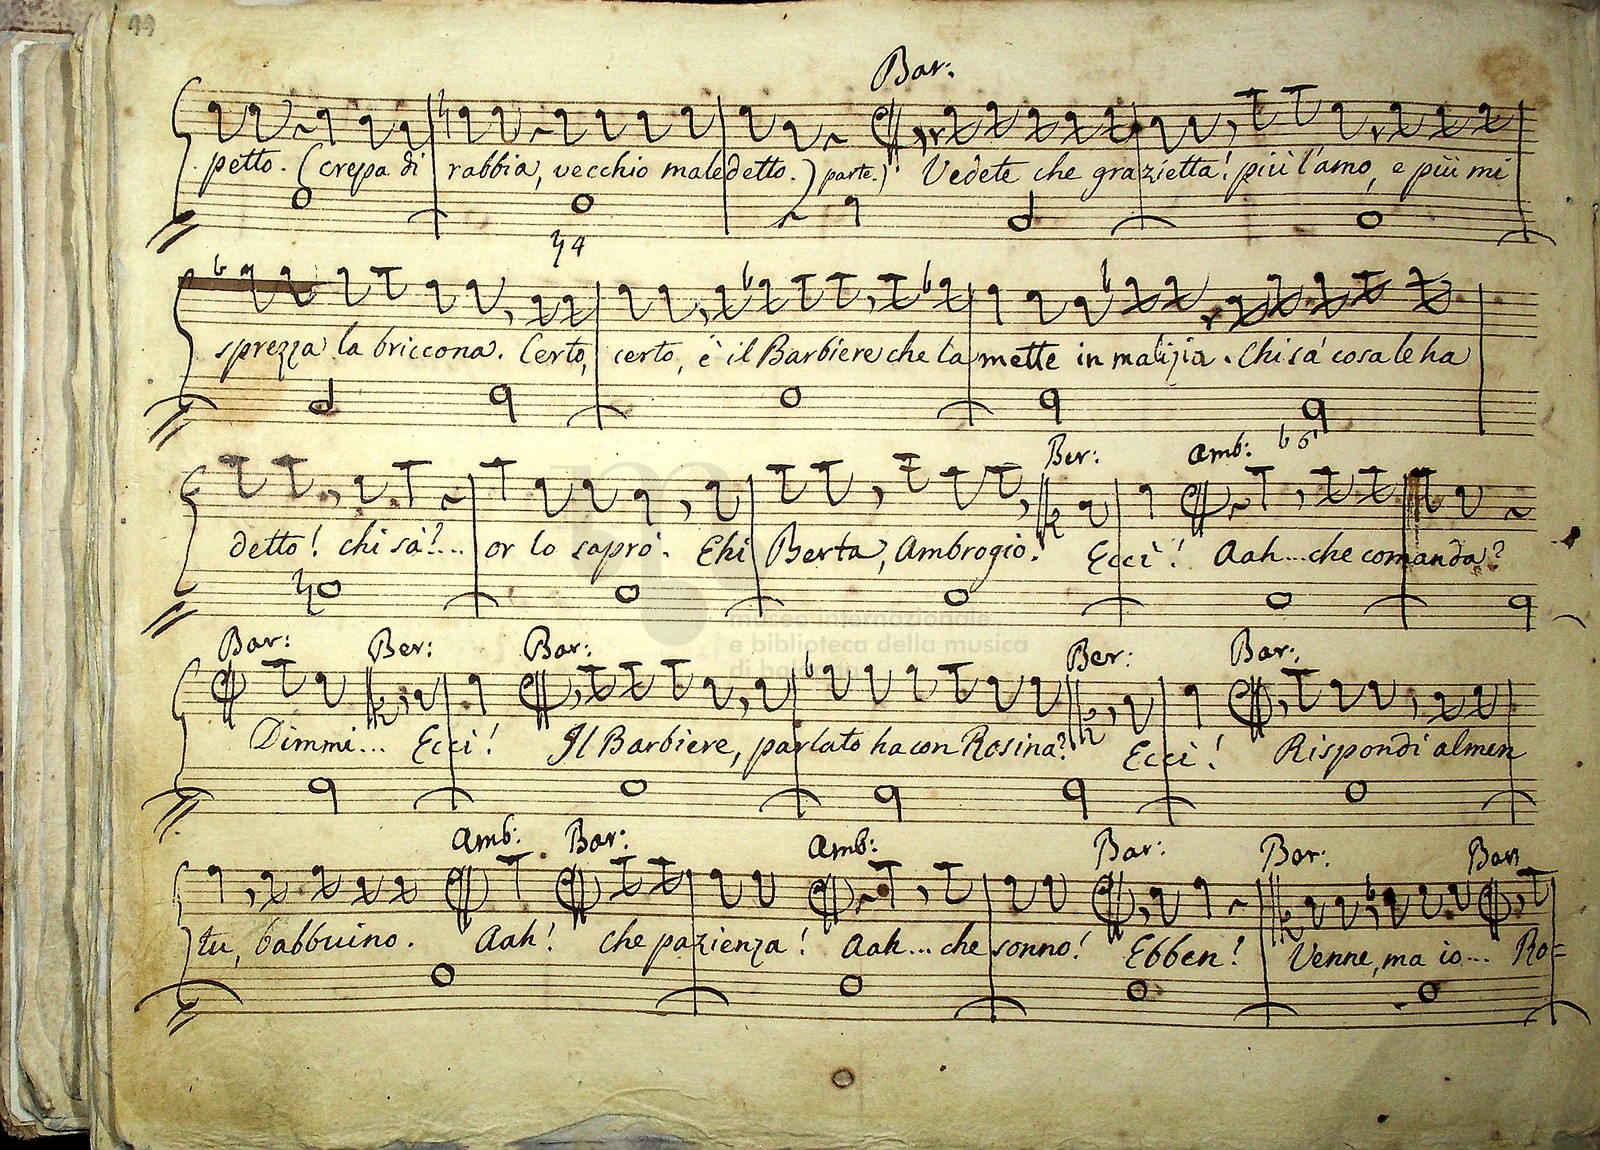 99
Bar:
petto. (crepa di rabbia, vecchio maledetto.) parte.) Vedete che grazietta! più l'amo, e più mi
♮4
sprezza la briccona. Certo, certo, è il Barbiere che la mette in malizia. Chi sà cosa le ha
♭6
Ber: Amb:
detto! chi sà?... or lo saprò. Ehi Berta, Ambrogio! Eccì! Aah... che comanda?
museo internazionale
e biblioteca della musica
di bologna
Bar: Ber: Bar: Ber: Bar:
Dimmi... Eccì! Il Barbiere, parlato ha con Rosina? Eccì! Rispondi almen
Amb: Bar: Amb: Bar: Ber: Bar
tu, babbuino. Aah! che pazienza! Aah... che sonno! Ebben! Venne, ma io... Ro=